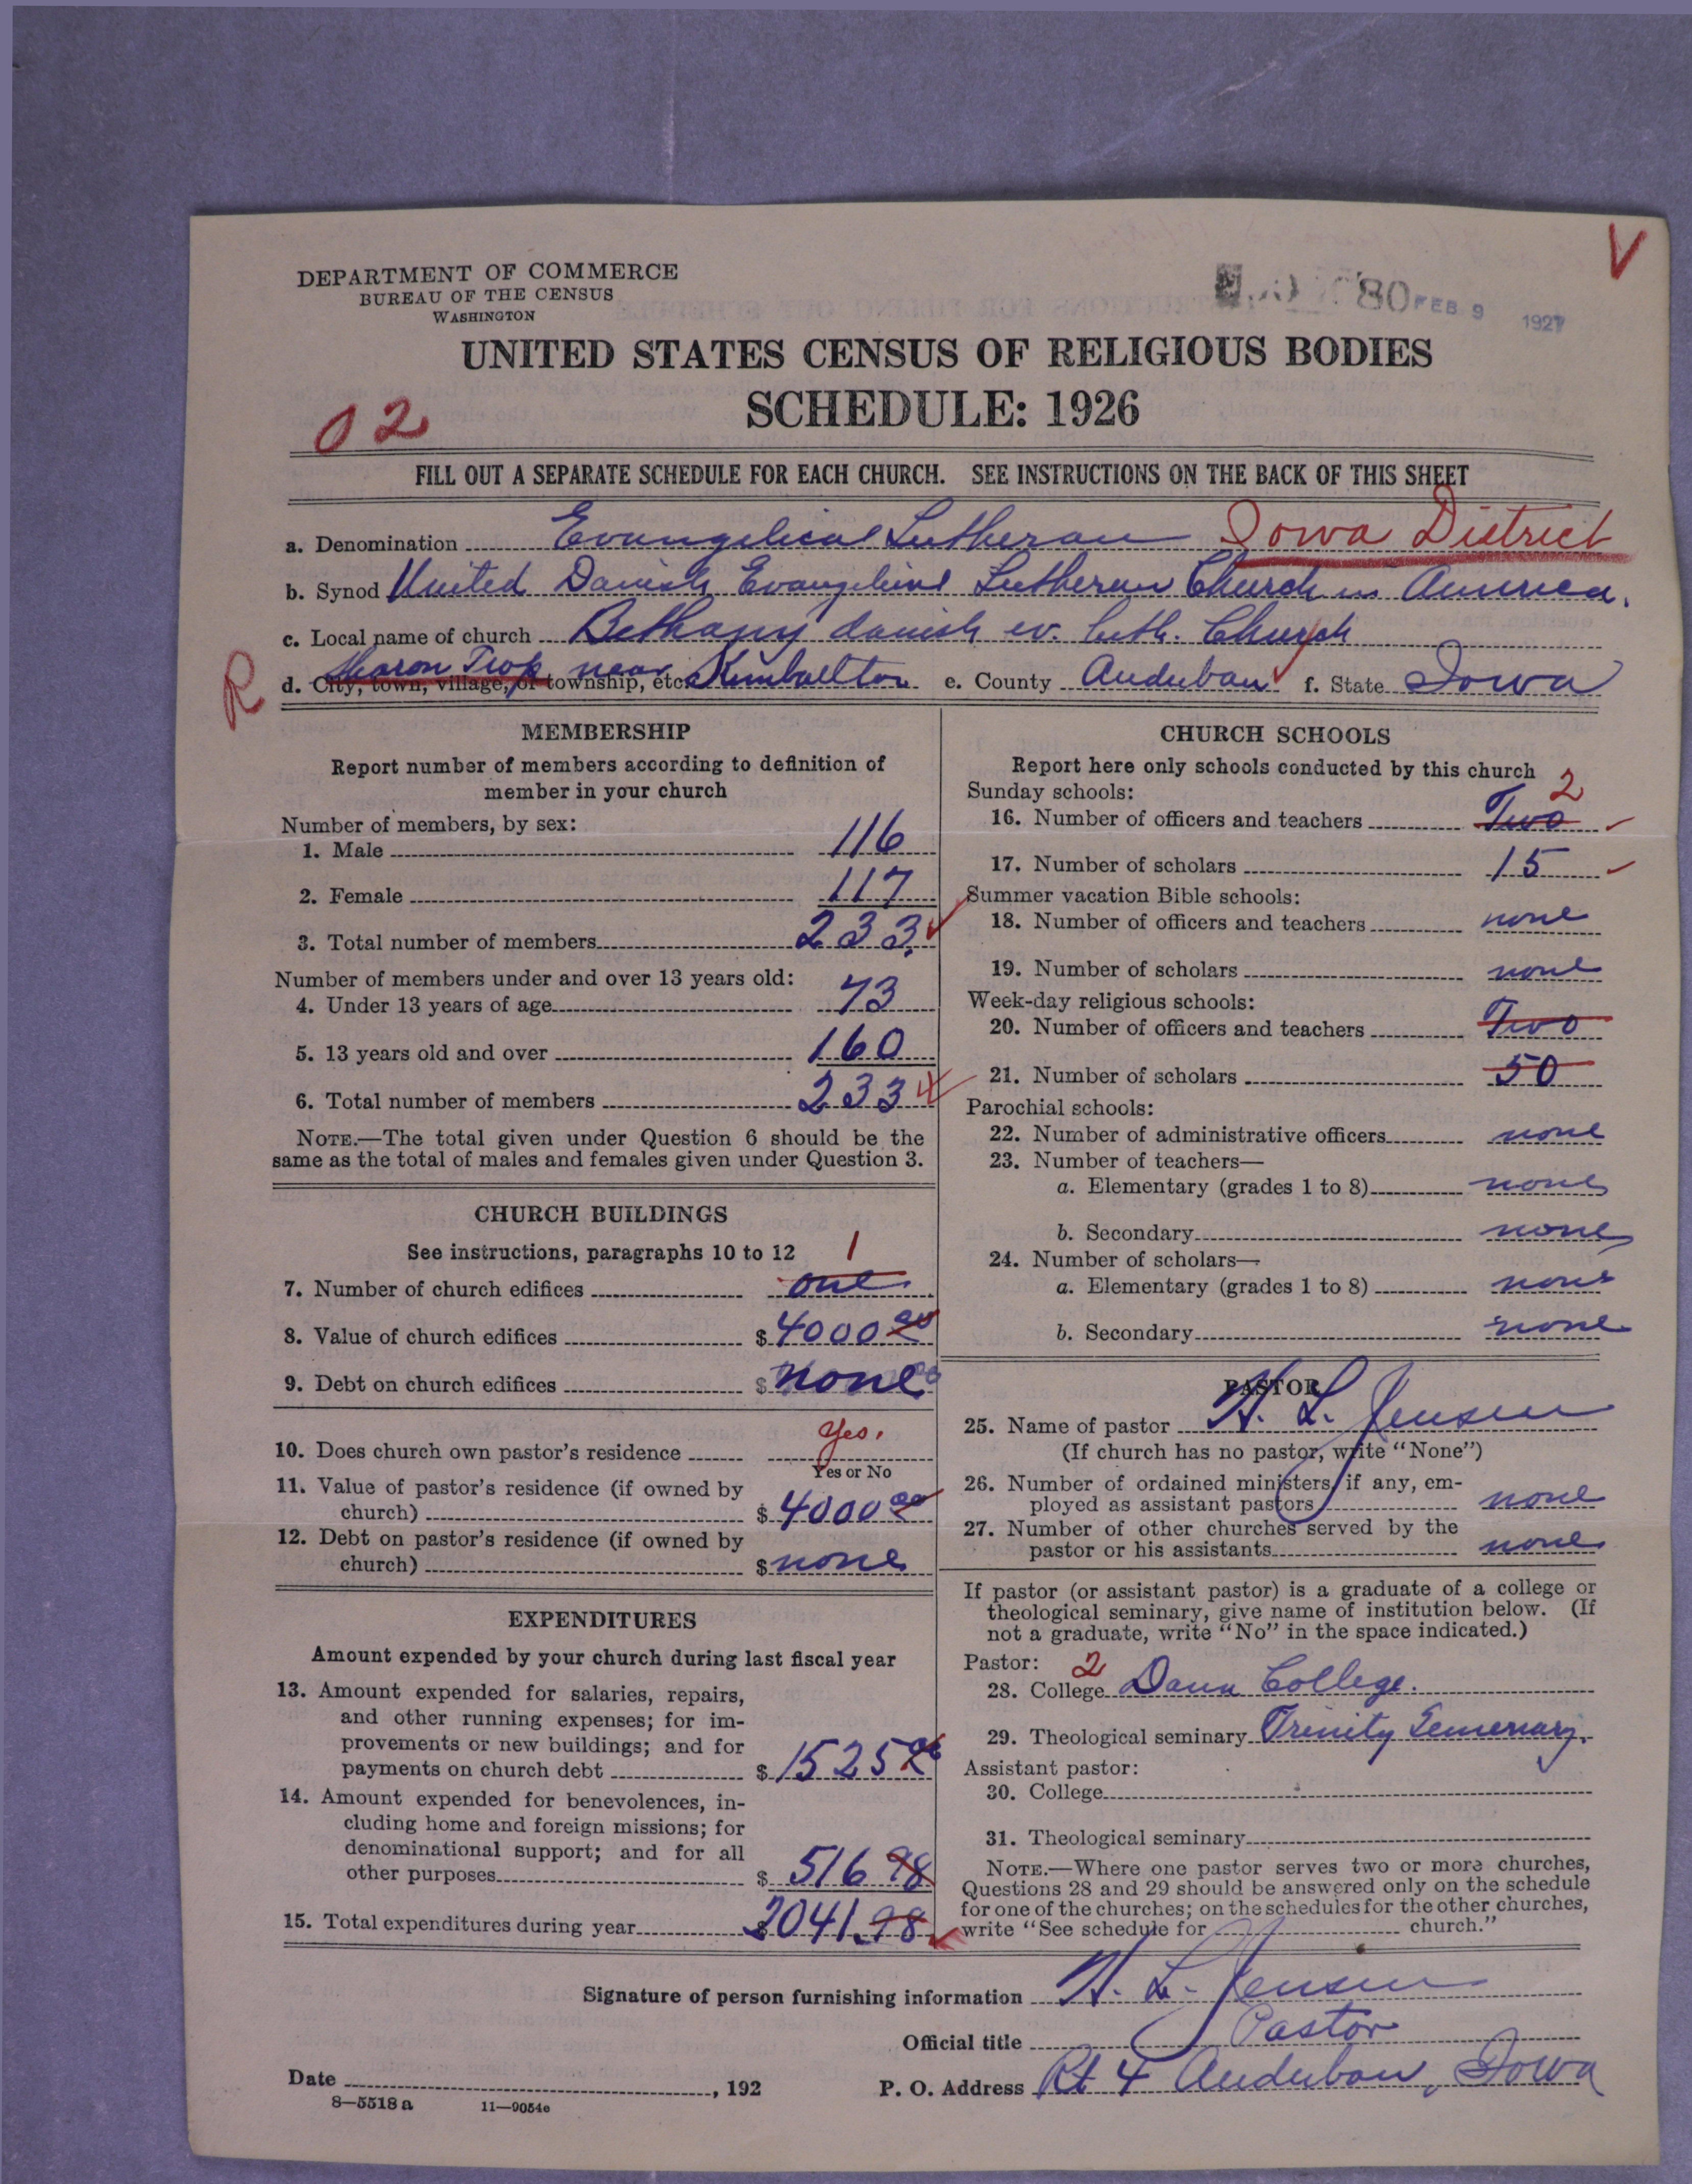 V
DEPARTMENT OF COMMERCE
BUREAU OF THE CENSUS
WASHINGTON
80 FEB 9 1927
UNITED STATES CENSUS OF RELIGIOUS BODIES
SCHEDULE: 1926
02
FILL OUT A SEPARATE SCHEDULE FOR EACH CHURCH. SEE INSTRUCTIONS ON THE BACK OF THIS SHEET
a. Denomination Evangelical Lutheran Iowa District
b. Synod United Danish Evangelical Lutheran Church in America.
c. Local name of church Bethany danish ev. luth. Church
R
d. City, town, village, or township, etc. Sharon Twp. near Kimballton e. County Audubon f. State Iowa
MEMBERSHIP
Report number of members according to definition of
member in your church
Number of members, by sex:
1. Male 116
2. Female 117
3. Total number of members 233
Number of members under and over 13 years old:
4. Under 13 years of age 73
5. 13 years old and over 160
6. Total number of members 233
NOTE.—The total given under Question 6 should be the
same as the total of males and females given under Question 3.
CHURCH BUILDINGS
See instructions, paragraphs 10 to 12 1
7. Number of church edifices one
8. Value of church edifices $ 4000 00
9. Debt on church edifices $ none
10. Does church own pastor's residence yes.
Yes or No
11. Value of pastor's residence (if owned by
church) $ 4000 00
12. Debt on pastor's residence (if owned by
church) $ none
EXPENDITURES
Amount expended by your church during last fiscal year
13. Amount expended for salaries, repairs,
and other running expenses; for im-
provements or new buildings; and for
payments on church debt $ 1525
14. Amount expended for benevolences, in-
cluding home and foreign missions; for
denominational support; and for all
other purposes $ 516 98
15. Total expenditures during year $ 2041.98
CHURCH SCHOOLS
Report here only schools conducted by this church
Sunday schools: 2
16. Number of officers and teachers Two
17. Number of scholars 15
Summer vacation Bible schools:
18. Number of officers and teachers none
19. Number of scholars none
Week-day religious schools:
20. Number of officers and teachers Two
21. Number of scholars 50
Parochial schools:
22. Number of administrative officers none
23. Number of teachers—
a. Elementary (grades 1 to 8) none
b. Secondary none
24. Number of scholars—
a. Elementary (grades 1 to 8) none
b. Secondary none
PASTOR
25. Name of pastor H. L. Jensen
(If church has no pastor, write "None")
26. Number of ordained ministers, if any, em-
ployed as assistant pastors none
27. Number of other churches served by the
pastor or his assistants none
If pastor (or assistant pastor) is a graduate of a college or
theological seminary, give name of institution below. (If
not a graduate, write "No" in the space indicated.)
Pastor: 2
28. College Dana College.
29. Theological seminary Trinity Semenary.
Assistant pastor:
30. College
31. Theological seminary
NOTE.—Where one pastor serves two or more churches,
Questions 28 and 29 should be answered only on the schedule
for one of the churches; on the schedules for the other churches,
write "See schedule for church."
Signature of person furnishing information H. L. Jensen
Official title Pastor
Date , 192 P. O. Address Rt 4 Audubon, Iowa
8—5518 a 11—9054e